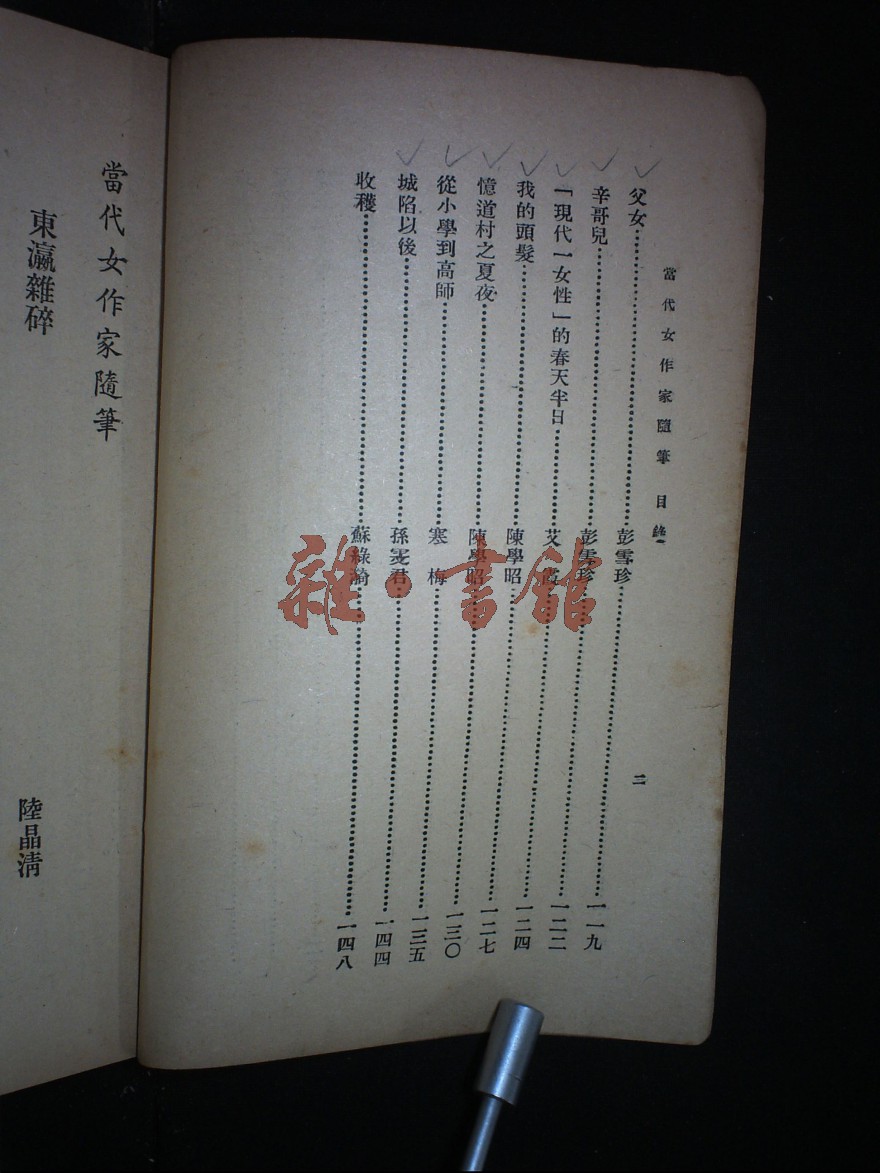 當代女作家隨筆 目錄
二
父女 彭雪珍 一一九
辛哥兒 彭雪珍 一二二
「現代一女性」的春天半日 艾霞 一二四
我的頭髮 陳學昭 一二七
憶道村之夏夜 陳學昭 一三〇
從小學到高師 寒梅 一三五
城陷以後 孫雯君 一四四
收穫 蘇綠漪 一四八
當代女作家隨筆
東瀛雜碎
陸晶清
雜·書館